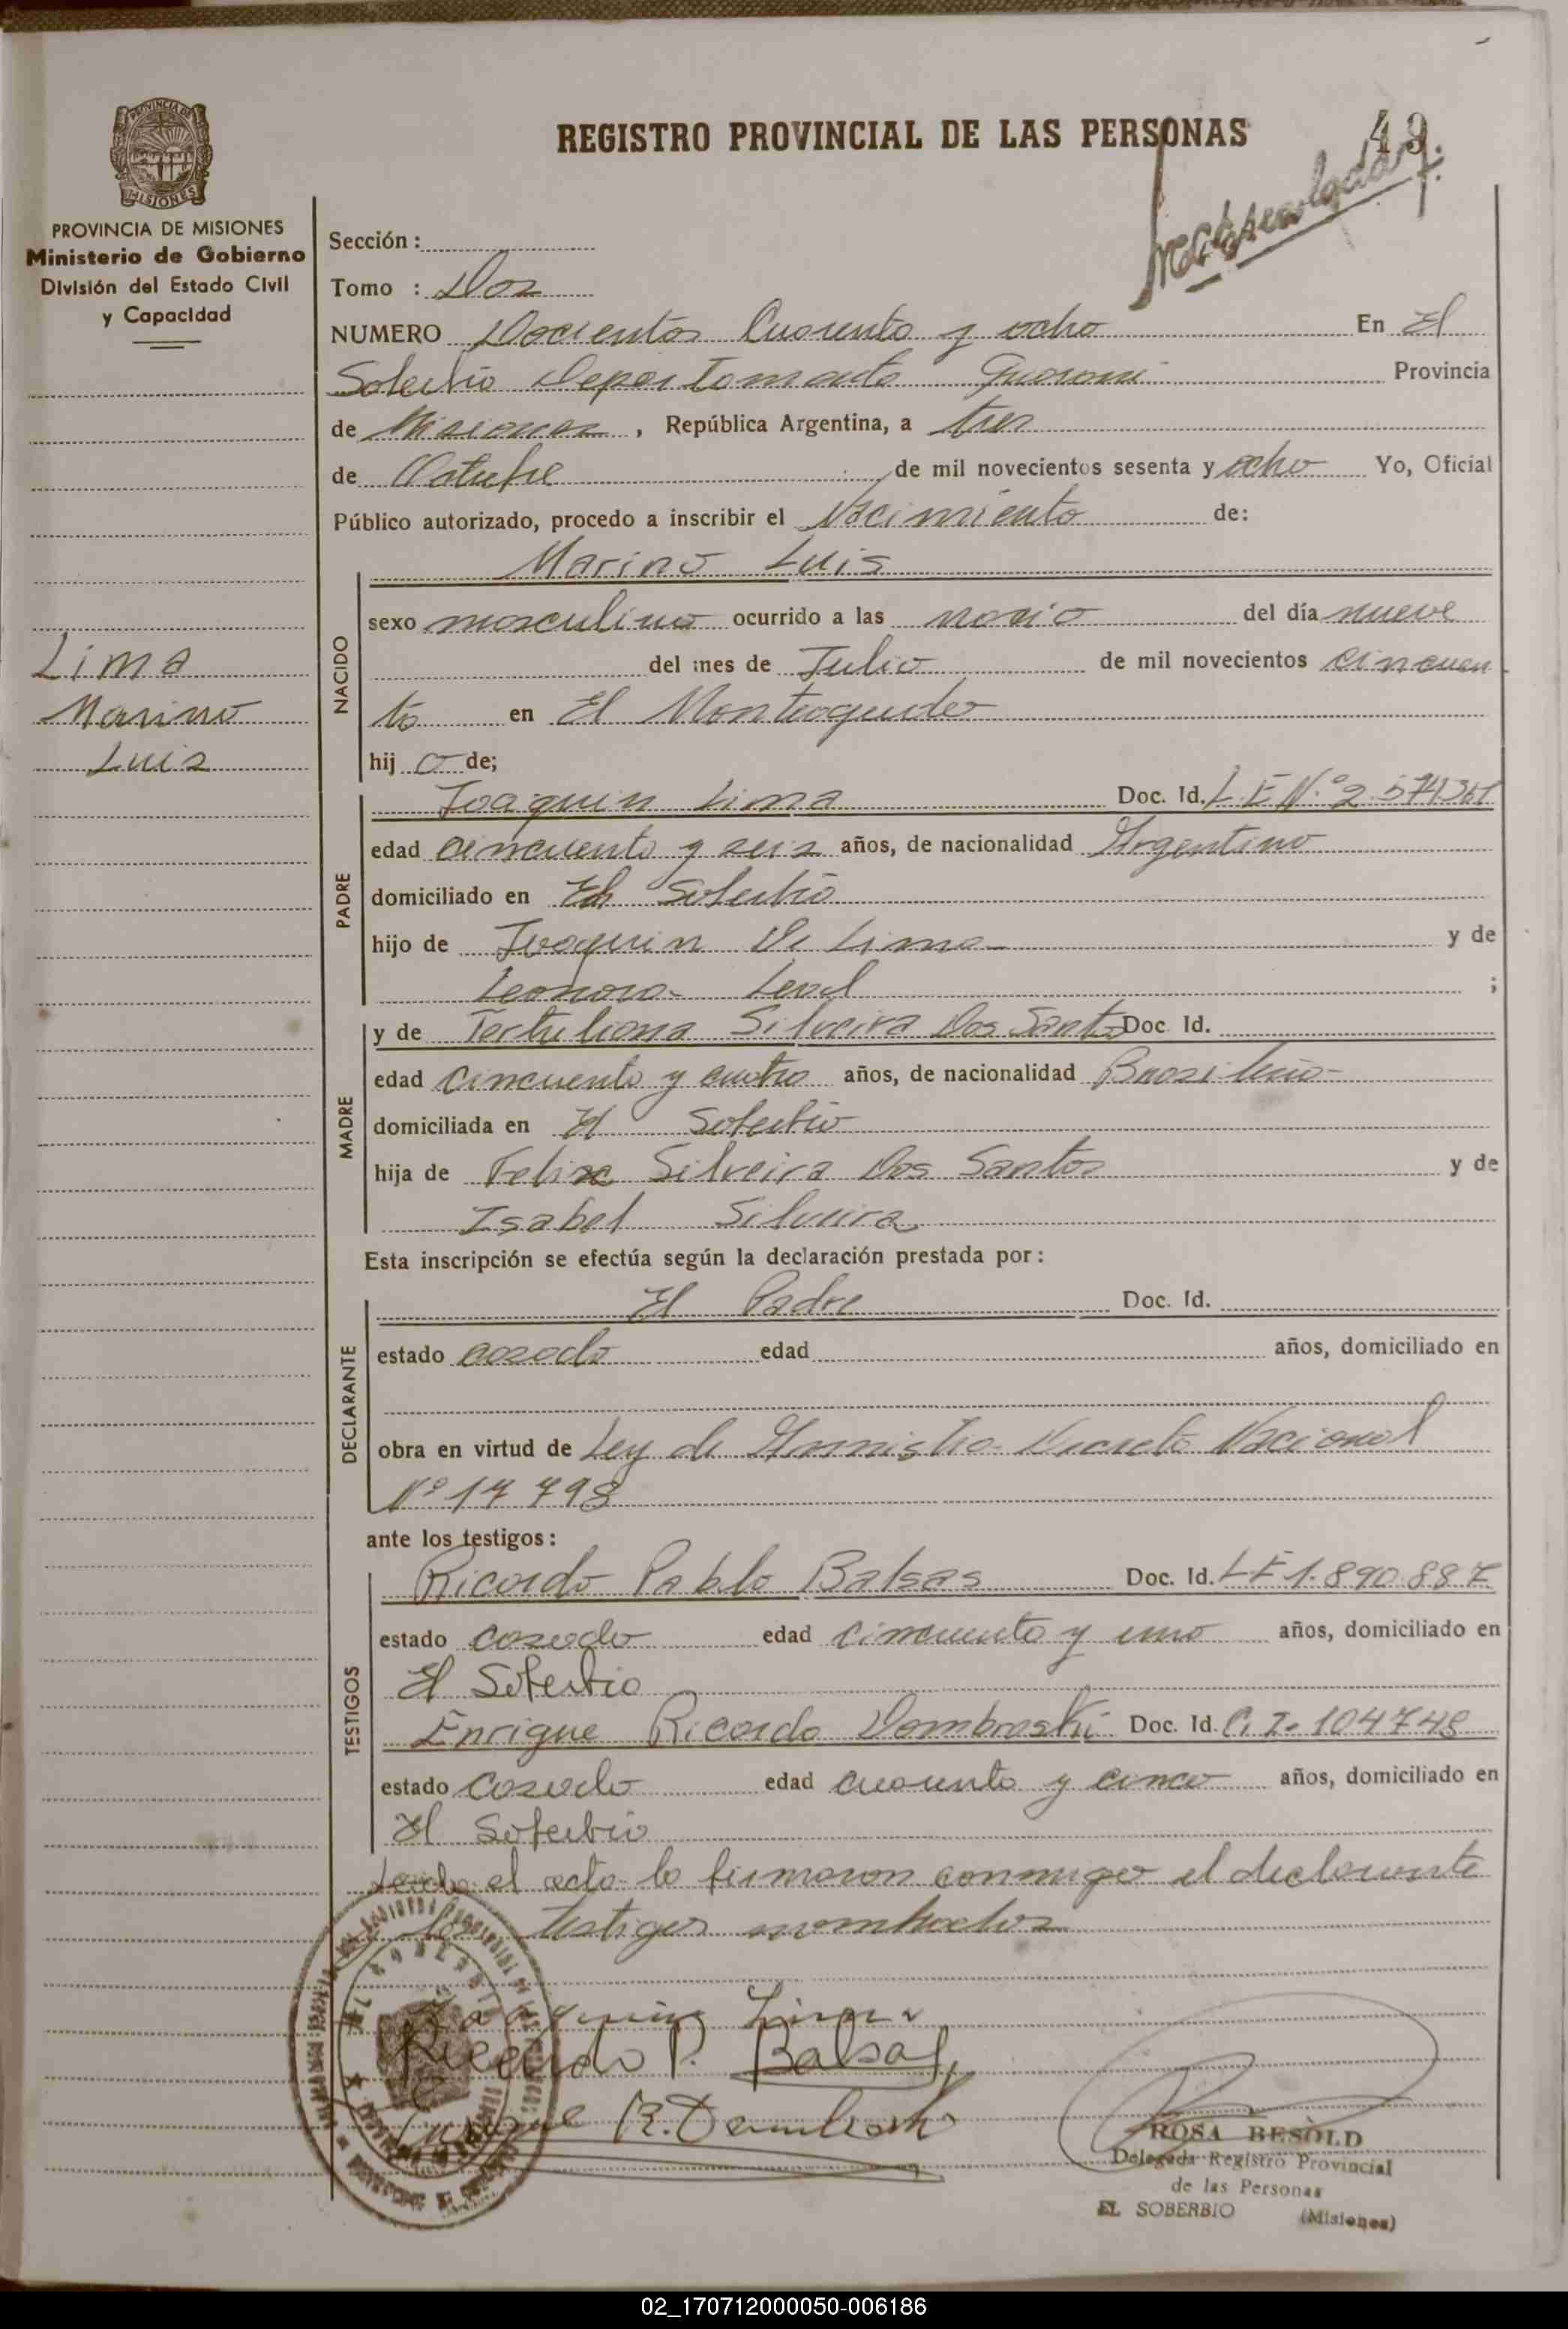 49.
REGISTRO PROVINCIAL DE LAS PERSONAS
PROVINCIA DE MISIONES
Ministerio de Gobierno
División del Estado Civil
y Capacidad
Sección :
Tomo : Dos
NUMERO Docientos Cuarenta y ocho En El
Soberbio Departamento Guarani Provincia
de Misiones , República Argentina, a tres
de Octubre de mil novecientos sesenta y ocho Yo, Oficial
Público autorizado, procedo a inscribir el Nacimiento de:
Marino Luis
NACIDO
sexo masculino ocurrido a las del día nueve
del mes de Julio de mil novecientos cincuen
ta en El Monteagudo
hij o de;
Lima
Marino
Luis
PADRE
Joaquin Lima Doc. Id. L E N.º
edad cincuenta y seis años, de nacionalidad Argentino
domiciliado en El Soberbio
hijo de Joaquin De Lima y de
Leonora Leal ;
MADRE
y de Tertuliana Silveira Dos Santos Doc. Id.
edad cincuenta y cuatro años, de nacionalidad Brasileña
domiciliada en El Soberbio
hija de Felix Silveira Dos Santos y de
Isabel Silveira
Esta inscripción se efectúa según la declaración prestada por :
DECLARANTE
El Padre Doc. Id.
estado casado edad años, domiciliado en
obra en virtud de Ley de Amnistia Decreto Nacional
Nº 17 798
ante los testigos :
TESTIGOS
Ricardo Pablo Balsas Doc. Id. LE 1.890.887
estado casado edad cincuenta y uno años, domiciliado en
El Soberbio
Enrique Ricardo Dombroski Doc. Id. C. I. 104748
estado casado edad cuarenta y cinco años, domiciliado en
El Soberbio
Leida el acta la firmaron conmigo el declarante
y los testigos nombrados
Joaquin Lima
Ricardo P. Balsas
Enrique R. Dombroski
ROSA BESOLD
Delegada Registro Provincial
de las Personas
EL SOBERBIO (Misiones)
02_170712000050-006186